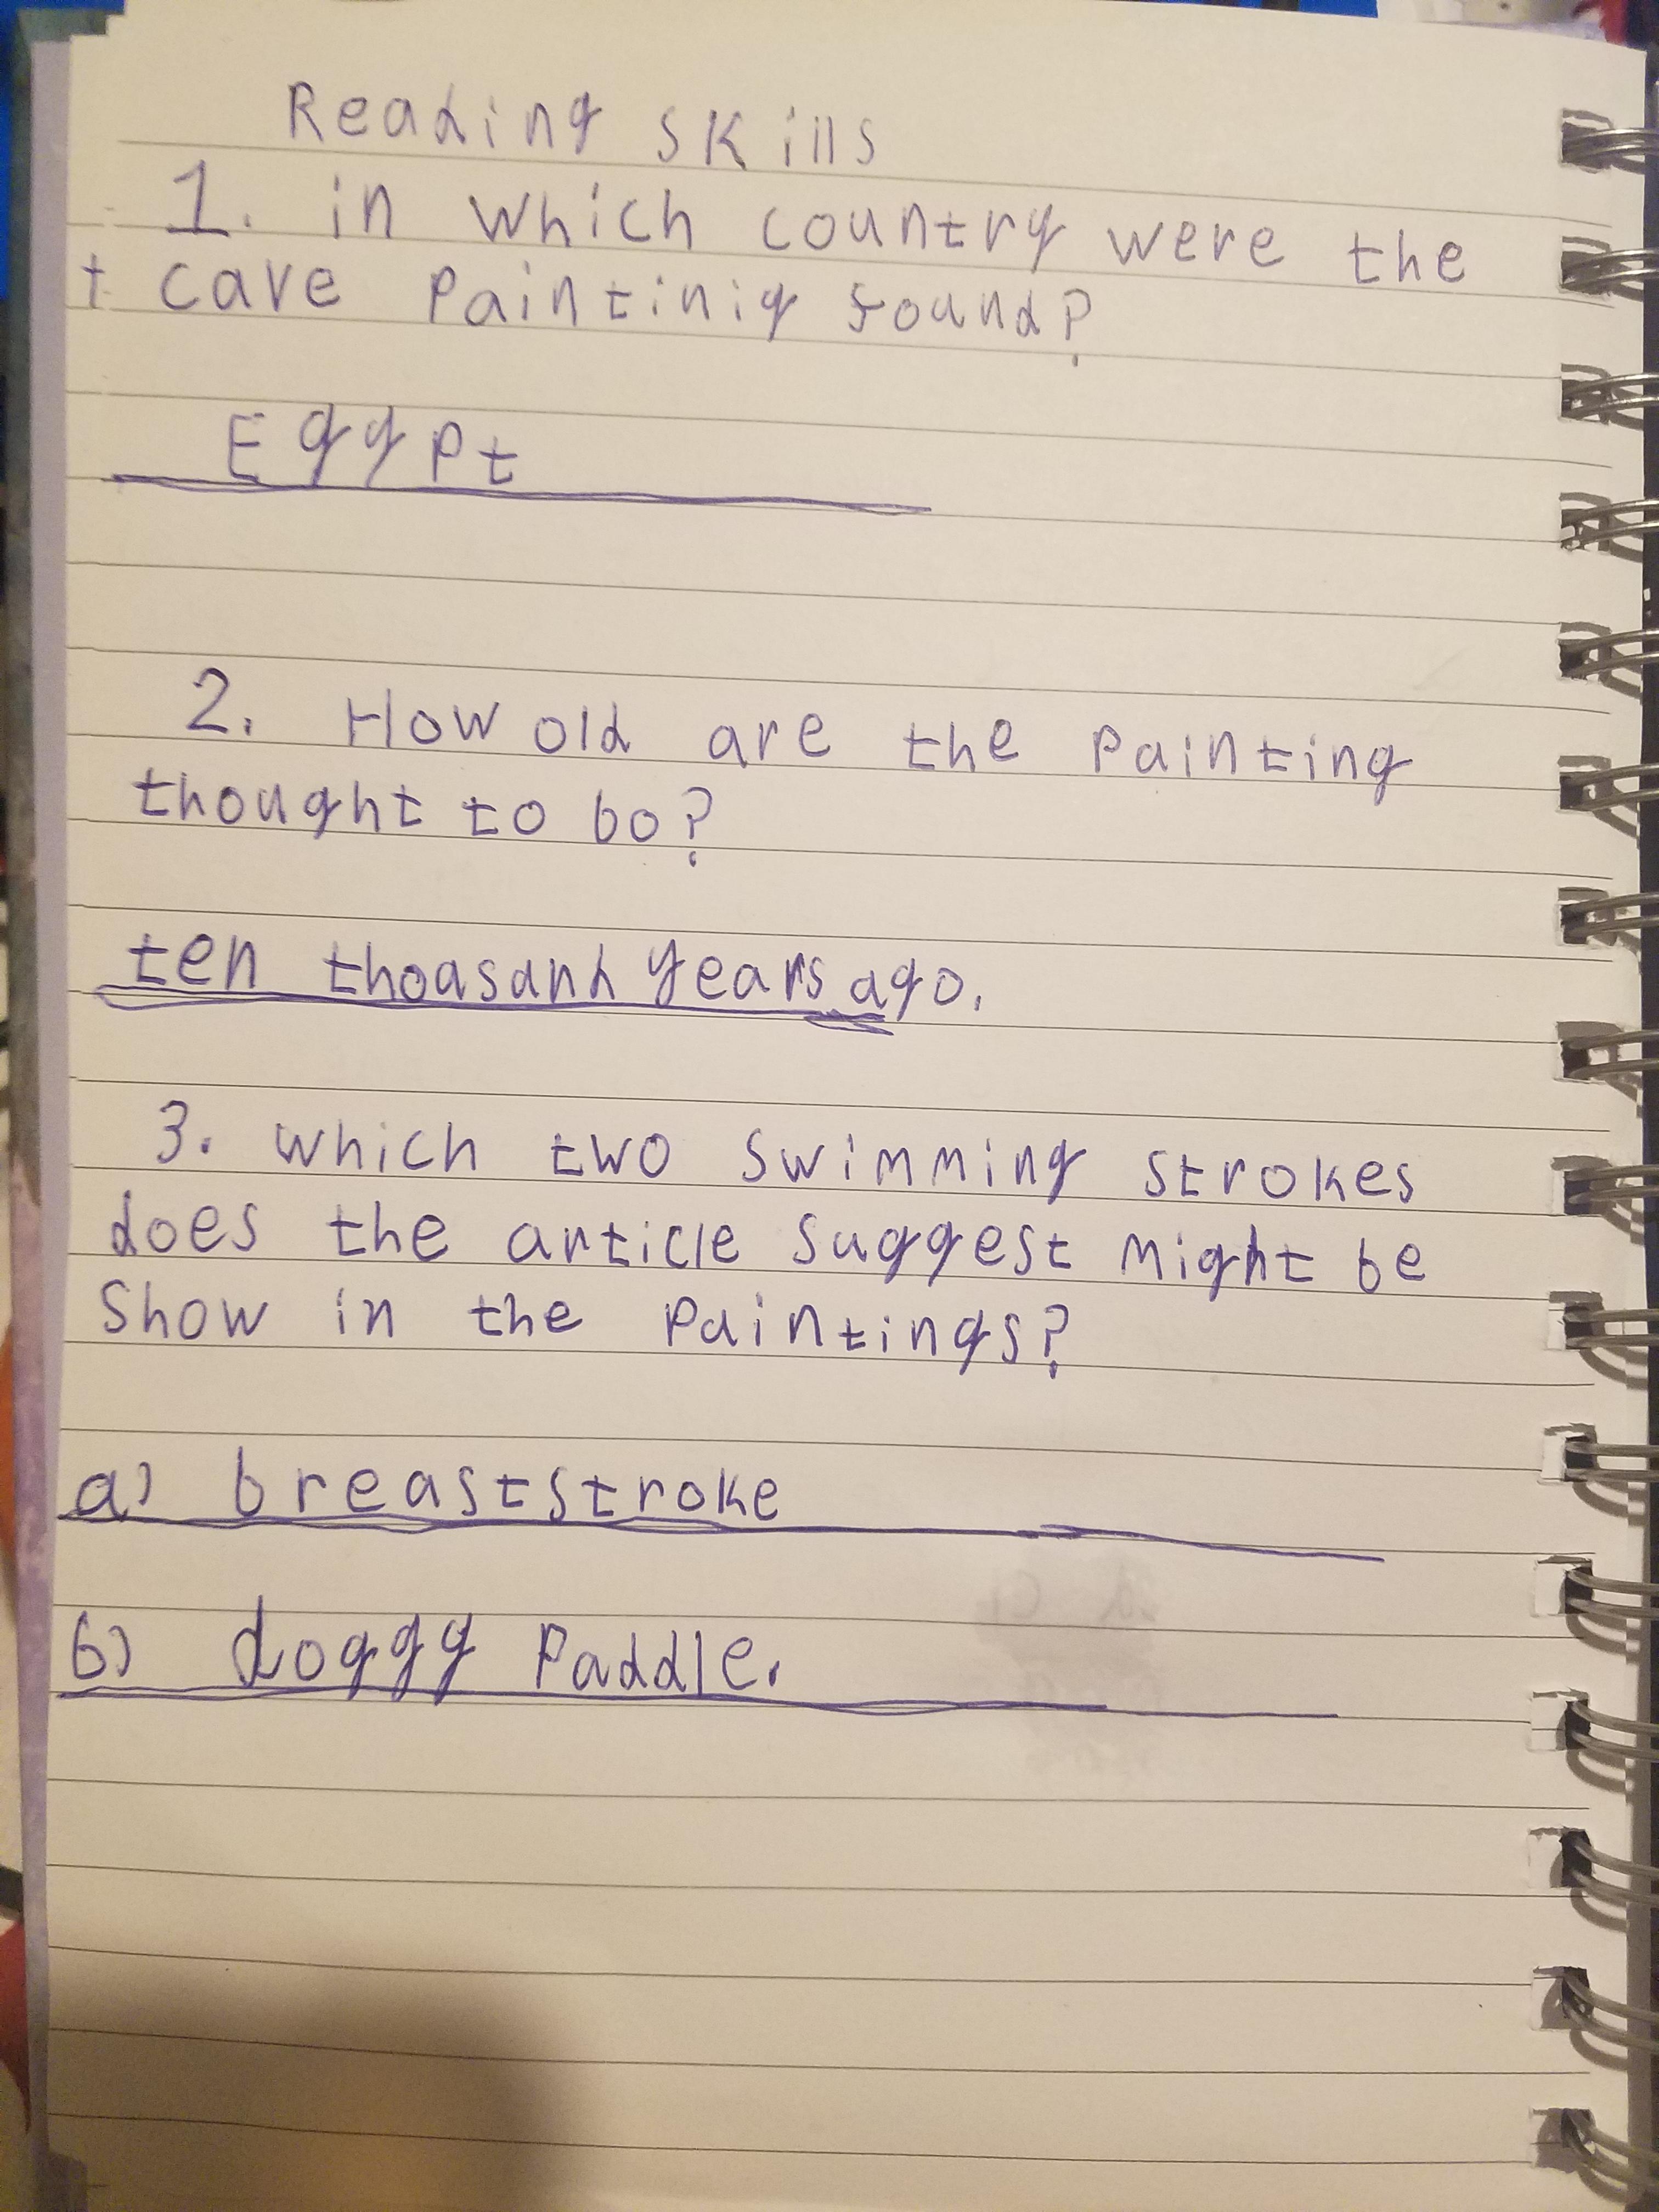 Reading skills
1. in which country were the
t cave paintinig found?
Eggpt
2. How old are the painting
thought to bo?
ten thoasand years ago.
3. which two swimming strokes
does the article suggest might be
show in the paintings?
a) breaststroke
b) doggy paddle.